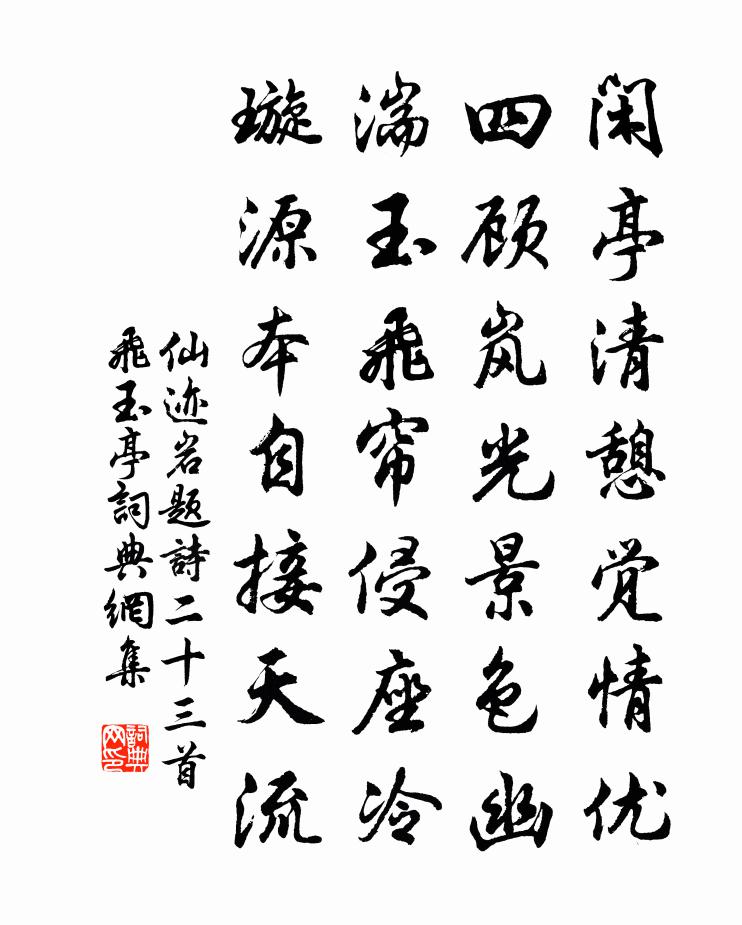 闲亭清憩觉情优
四顾岚光景色幽
湍玉飛帘侵座冷
璇源本自接天流
仙迹岩题詩二十三首
飛玉亭詞典網集
詞典网印